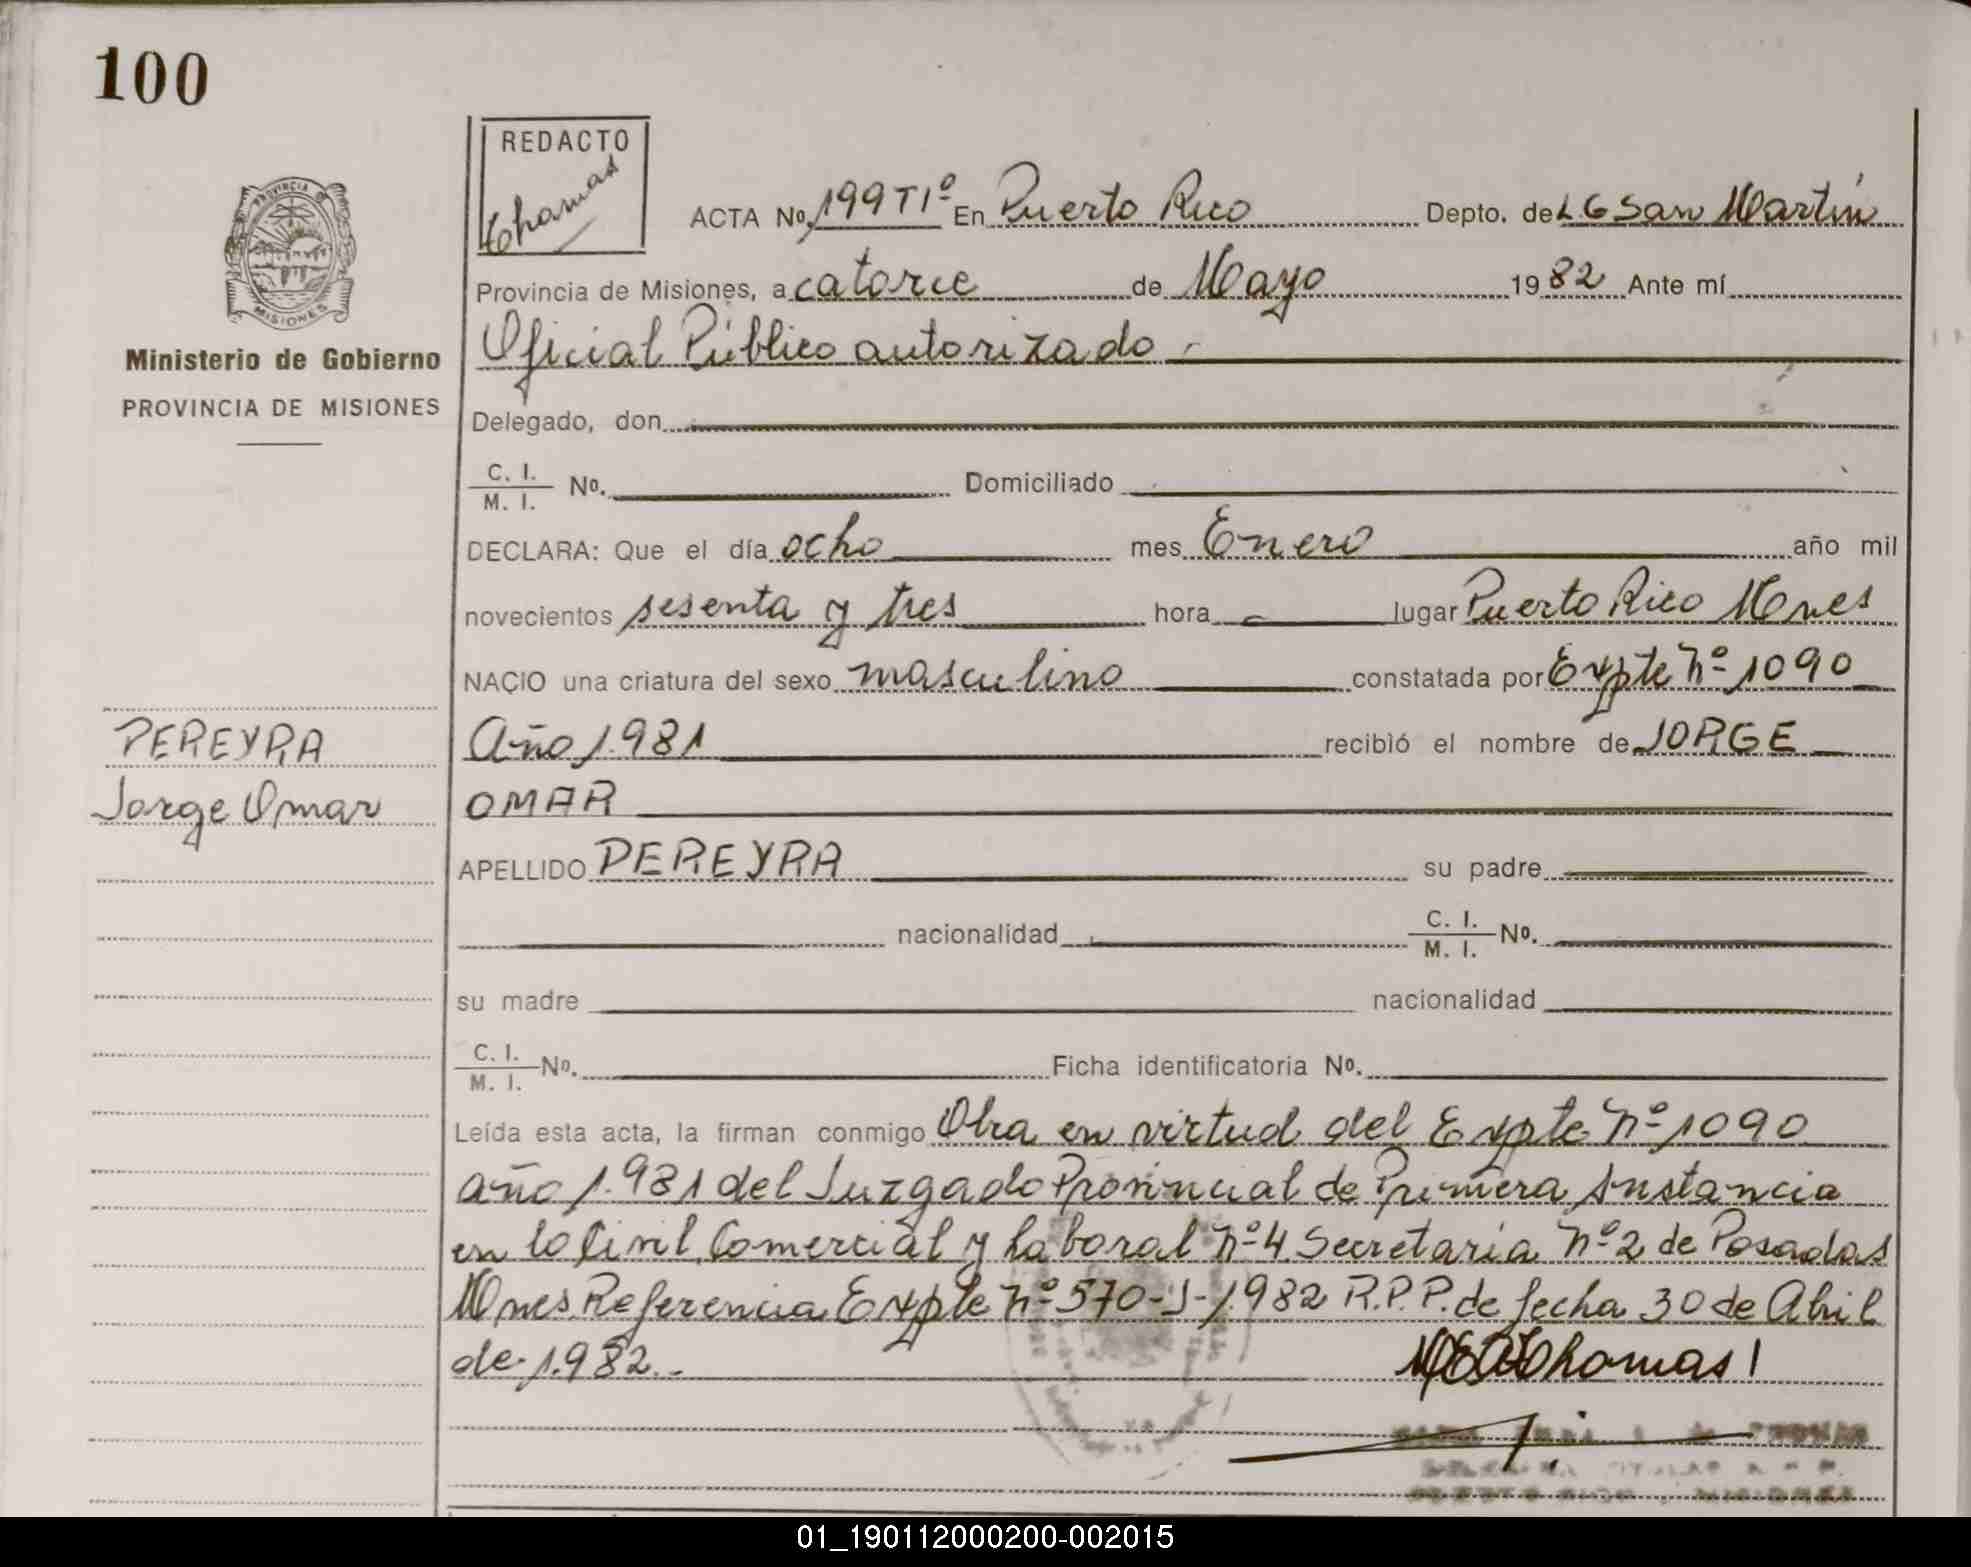 100
REDACTO
Thomas
PROVINCIA
MISIONES
Ministerio de Gobierno
PROVINCIA DE MISIONES
ACTA No. 199 TIº En Puerto Rico Depto. de L G San Martín
Provincia de Misiones, a catorce de Mayo 1982 Ante mí
Oficial Público autorizado
Delegado, don
C. I. / M. I. No. Domiciliado
DECLARA: Que el día ocho mes Enero año mil
novecientos sesenta y tres hora lugar Puerto Rico Mnes
NACIO una criatura del sexo masculino constatada por Expte Nº 1090
Año 1.981 recibió el nombre de JORGE
OMAR
PEREYRA
Jorge Omar
APELLIDO PEREYRA su padre
nacionalidad C. I. / M. I. No.
su madre nacionalidad
C. I. / M. I. No. Ficha identificatoria No.
Leída esta acta, la firman conmigo Obra en virtud del Expte Nº 1090
año 1.981 del Juzgado Provincial de Primera Instancia
en lo Civil, Comercial y Laboral Nº 4 Secretaria Nº 2 de Posadas
Mnes Referencia Expte Nº 570-J-1.982 R.P.P. de fecha 30 de Abril
de 1.982.-
Thomas
01_190112000200-002015